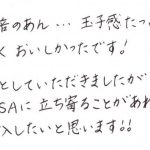 音のあん… 玉子感たっ
く おいしかったです!
としていただきましたが
SAに 立ち寄ることがあれ
入したいと思います!!